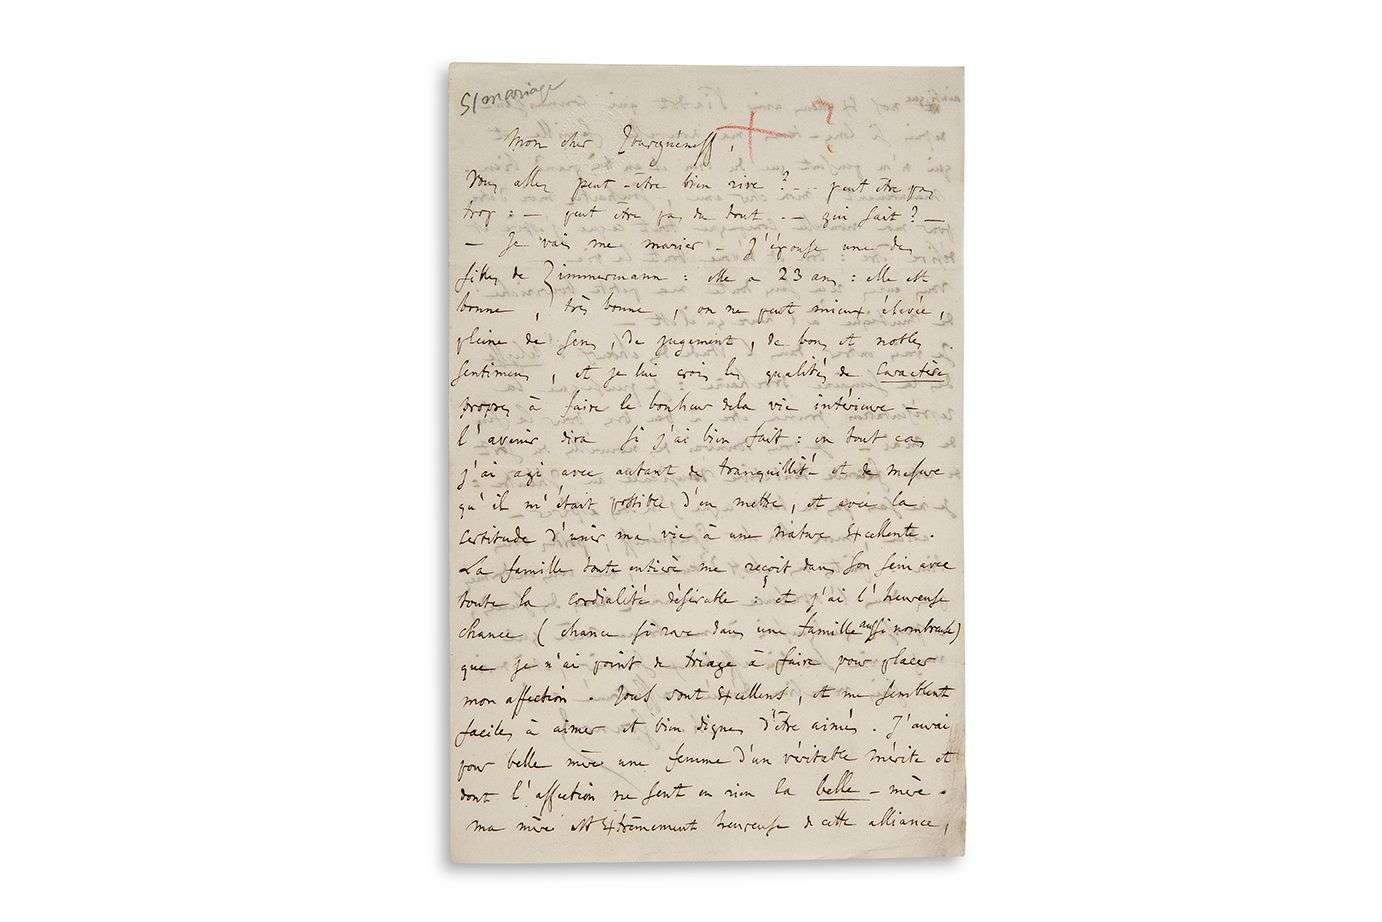 S/ mariage
?
Mon cher Tourguéneff,
Vous allez peut-être bien rire ? -- peut être pas
trop : — peut être pas du tout -- qui sait ? —
— Je vais me marier — J'épouse une des
filles de Zimmermann : elle a 23 ans : elle est
bonne, très bonne, on ne peut mieux élevée,
pleine de sens, de jugement, de bons et nobles
sentimens, et je lui crois les qualités de Caractère
propres à faire le bonheur de la vie intérieure —
l'avenir dira si j'ai bien fait : en tout cas
j'ai agi avec autant de tranquillité et de mesure
qu'il m'était possible d'en mettre, et avec la
certitude d'unir ma vie à une nature excellente.
La famille toute entière me reçoit dans son sein avec
toute la cordialité désirable : et j'ai l'heureuse
chance (chance si rare dans une famille aussi nombreuse)
que je n'ai point de triage à faire pour placer
mon affection. Tous sont excellens, et me semblent
faciles à aimer et bien dignes d'être aimés. J'aurai
pour belle mère une femme d'un véritable mérite et
dont l'affection ne sent en rien la belle-mère.
ma mère est extrêmement heureuse de cette alliance,